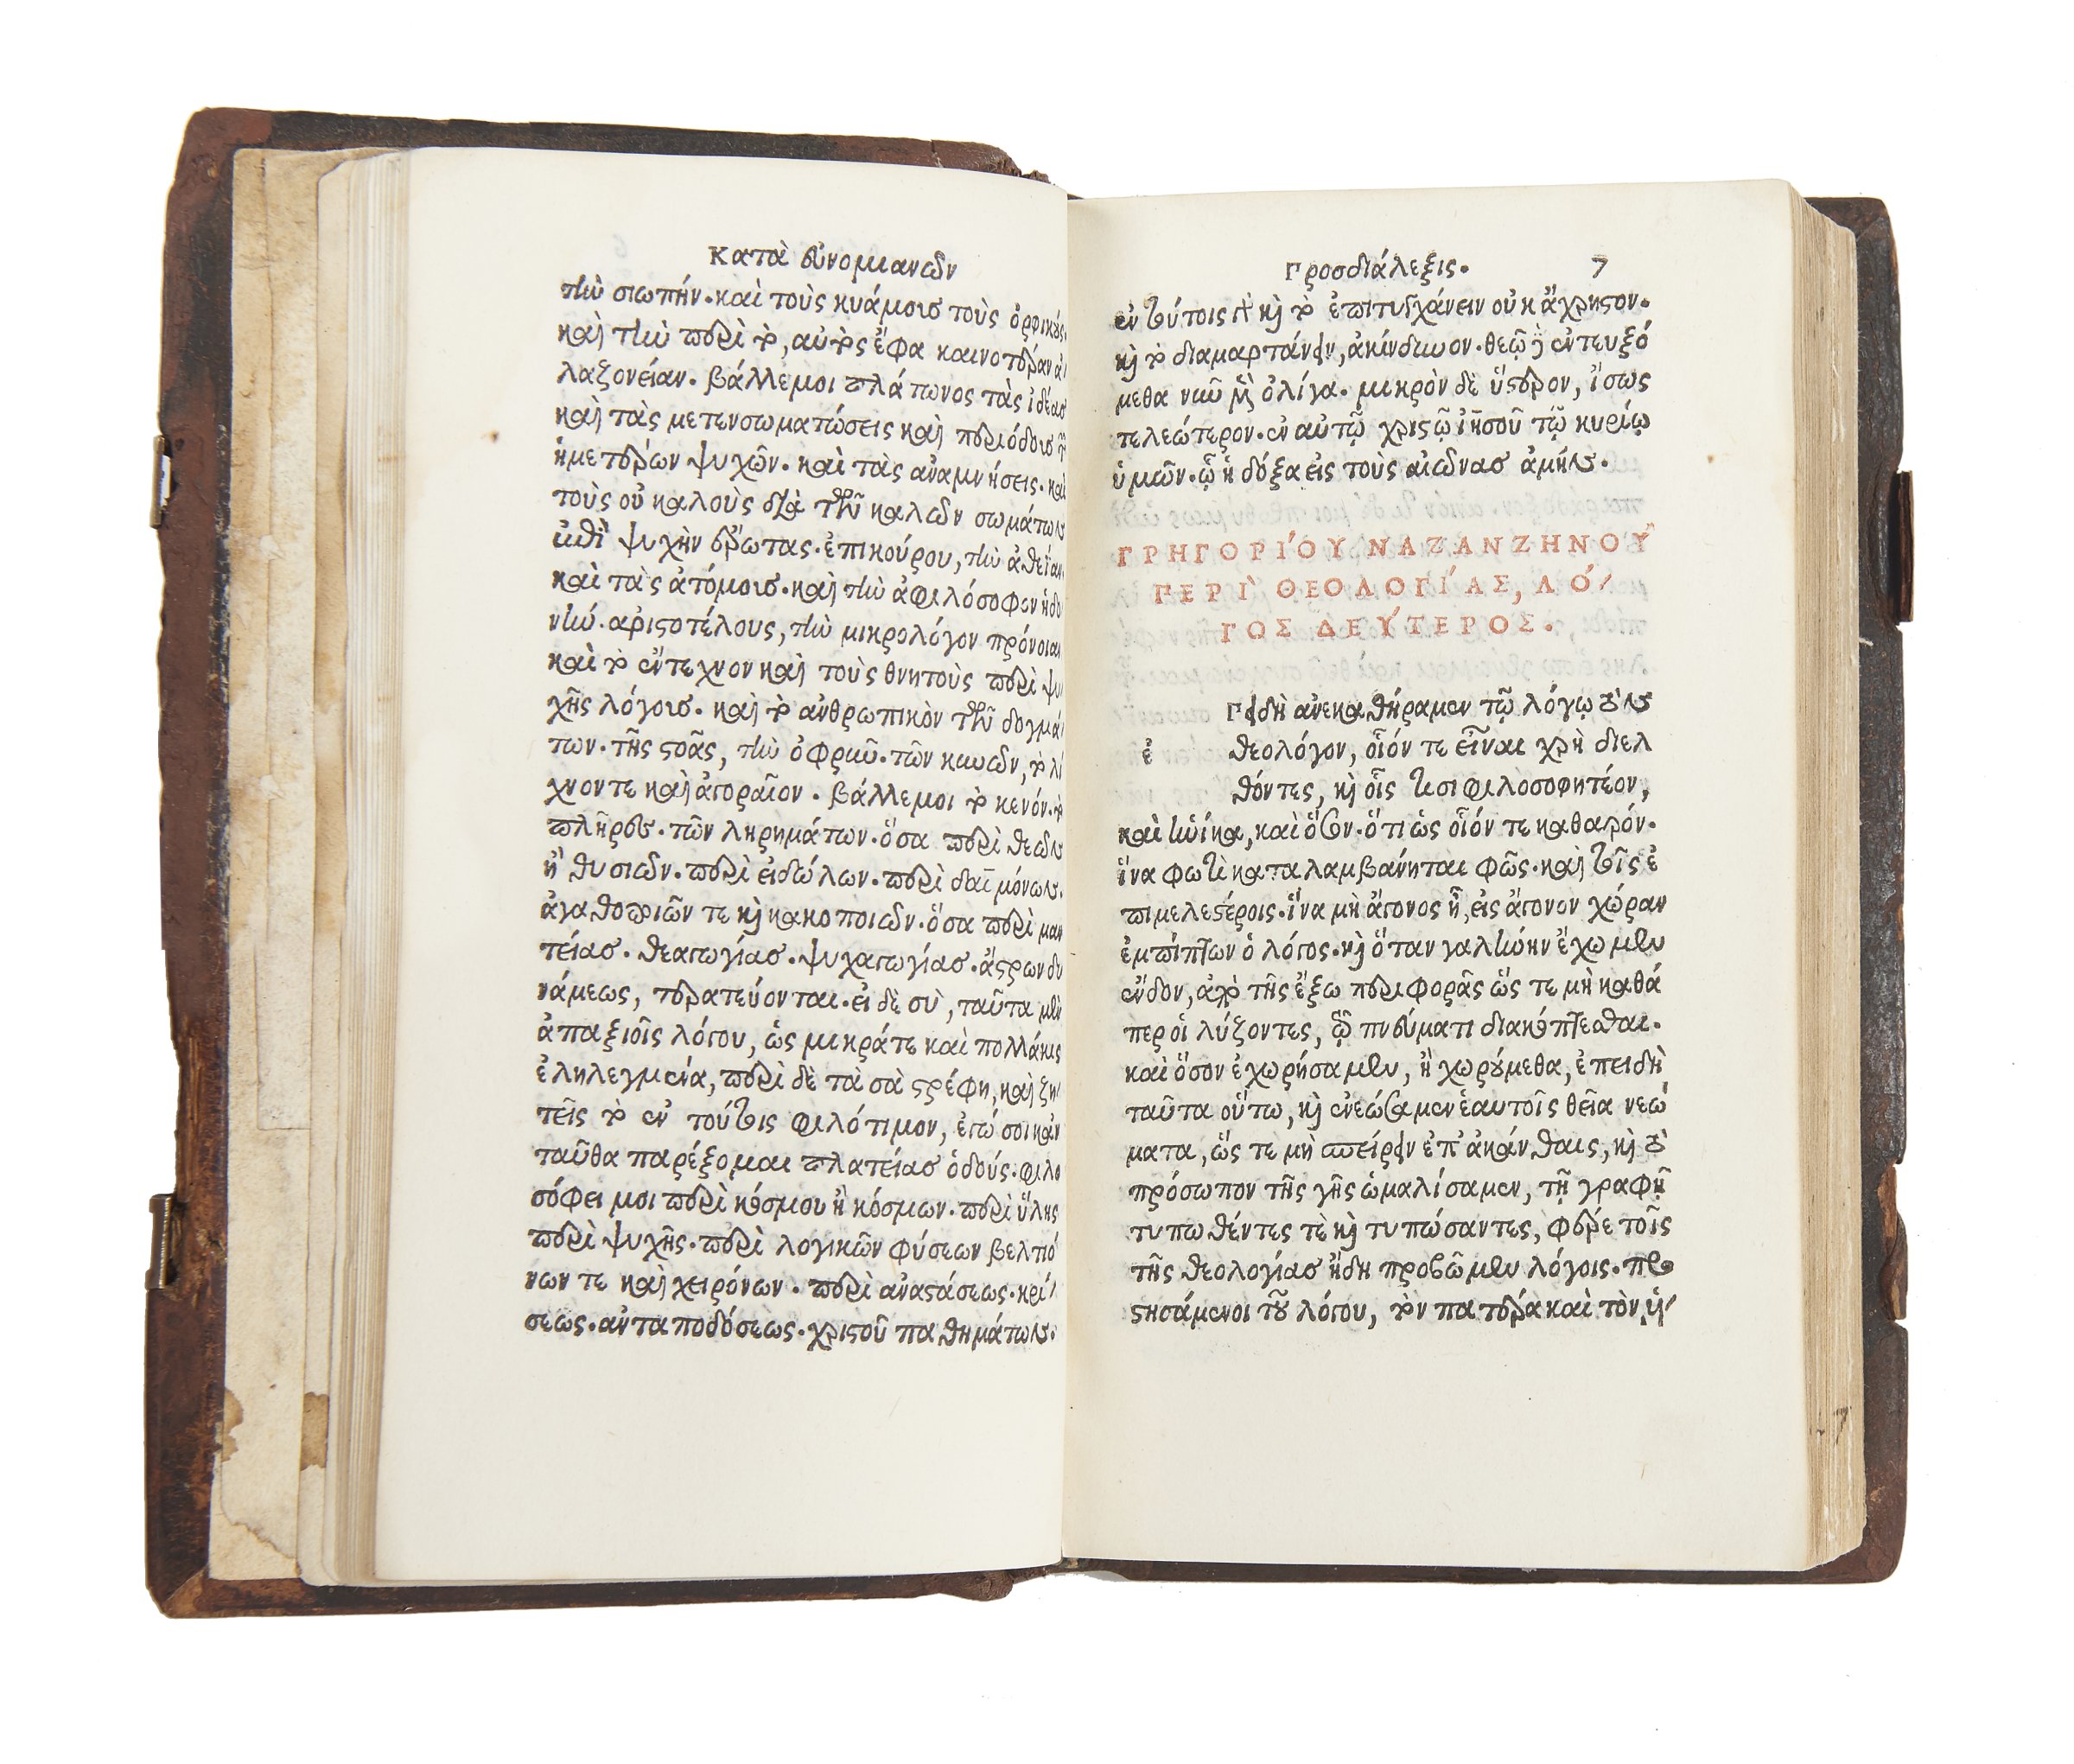 Κατὰ εὐνομιανῶν
τὴν σιωπήν. καὶ τοὺς κυάμους τοὺς ὀρφικούς.
καὶ τὴν περὶ τὸ, αὐτὸς ἔφα καινοτέραν ἀ
λαζονείαν. βάλλε μοι πλάτωνος τὰς ἰδέας
καὶ τὰς μετενσωματώσεις καὶ περιόδους τῶν
ἡμετέρων ψυχῶν. καὶ τὰς ἀναμνήσεις. καὶ
τοὺς οὐ καλοὺς διὰ τῶν καλῶν σωμάτων
ἐπὶ ψυχὴν ἔρωτας. ἐπικούρου, τὴν ἀθεΐαν
καὶ τὰς ἀτόμους. καὶ τὴν ἀφιλόσοφον ἡδο
νήν. ἀριστοτέλους, τὴν μικρολόγον πρόνοιαν
καὶ τὸ ἔντεχνον καὶ τοὺς θνητοὺς περὶ ψυ
χῆς λόγους. καὶ τὸ ἀνθρωπικὸν τῶν δογμά
των. τῆς στοᾶς, τὴν ὀφρῦν. τῶν κυνῶν, τὸ λί
χνον τε καὶ ἀγοραῖον. βάλλε μοι τὸ κενόν. τὸ
πλῆρες. τῶν ληρημάτων. ὅσα περὶ θεῶν
ἢ θυσιῶν. περὶ εἰδώλων. περὶ δαιμόνων.
ἀγαθοποιῶν τε κὶ κακοποιῶν. ὅσα περὶ μαν
τείας. θεαγωγίας. ψυχαγωγίας. ἄστρων δυ
νάμεως, τερατεύονται. εἰ δὲ σὺ, ταῦτα μὲν
ἀπαξιοῖς λόγου, ὡς μικρά τε καὶ πολλάκις
ἐληλεγμένα, περὶ δὲ τὰ σὰ στρέφη, καὶ ζη
τεῖς τὸ ἐν τούτοις φιλότιμον, ἐγώ σοι κἀν
ταῦθα παρέξομαι πλατείας ὁδούς. φιλο
σόφει μοι περὶ κόσμου ἢ κόσμων. περὶ ὕλης
περὶ ψυχῆς. περὶ λογικῶν φύσεων βελτιό
νων τε καὶ χειρόνων. περὶ ἀναστάσεως. κρί/
σεως. ἀνταποδόσεως. χριστοῦ παθημάτων.
Προσδιάλεξις. 7
ἐν τούτοις γὰρ κὶ τὸ ἐπιτυγχάνειν οὐκ ἄχρηστον.
κὶ τὸ διαμαρτάνειν, ἀκίνδυνον. θεῷ δὲ ἐντευξό
μεθα νῦν μὲν ὀλίγα. μικρὸν δὲ ὕστερον, ἴσως
τελεώτερον. ἐν αὐτῷ χριστῷ ἰησοῦ τῷ κυρίῳ
ὑμῶν. ᾧ ἡ δόξα εἰς τοὺς αἰῶνας ἀμήν.
ΓΡΗΓΟΡΙΌΥ ΝΑΖΑΝΖΗΝΟΥ͂
ΠΕΡῚ ΘΕΟΛΟΓΊΑΣ, ΛΌ/
ΓΟΣ ΔΕΎΤΕΡΟΣ.
Πειδὴ ἀνεκαθήραμεν τῷ λόγῳ τὸν
ἐ θεολόγον, οἷόν τε εἶναι χρὴ διελ
θόντες, κὶ οἷς τισι φιλοσοφητέον,
καὶ ἡνίκα, καὶ ὅσον. ὅτι ὡς οἷόν τε καθαρόν.
ἵνα φωτὶ καταλαμβάνηται φῶς. καὶ τοῖς ἐ
πιμελεστέροις. ἵνα μὴ ἄγονος ᾖ, εἰς ἄγονον χώραν
ἐμπίπτων ὁ λόγος. κὶ ὅταν γαλήνην ἔχωμεν
ἔνδον, ἀπὸ τῆς ἔξω περιφορᾶς ὥς τε μὴ καθά
περ οἱ λύζοντες, τῷ πνεύματι διακόπτεσθαι.
καὶ ὅσον ἐχωρήσαμεν, ἢ χωρούμεθα, ἐπειδὴ
ταῦτα οὕτω, κὶ ἐνεώσαμεν ἑαυτοῖς θεῖα νεώ
ματα, ὥς τε μὴ σπείρειν ἐπ᾽ ἀκάνθαις, κὶ τὸ
πρόσωπον τῆς γῆς ὡμαλίσαμεν, τῇ γραφῇ
τυπωθέντες τὲ κὶ τυπώσαντες, φέρε τοῖς
τῆς θεολογίας ἤδη προσβῶμεν λόγοις. προ
στησάμενοι τοῦ λόγου, τὸν πατέρα καὶ τὸν ὑ/